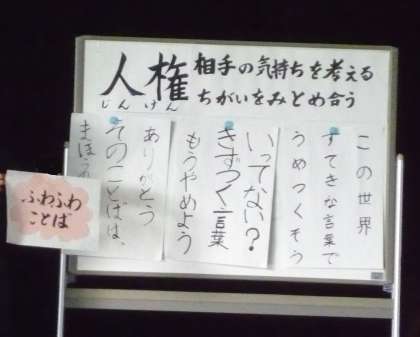 人権
じんけん
相手の気持ちを考える
ちがいをみとめ合う
この世界
すてきな言葉で
うめつくそう
いってない?
きずつく言葉
もうやめよう
ありがとう
そのことばは、
まほうの
ふわふわ
ことば